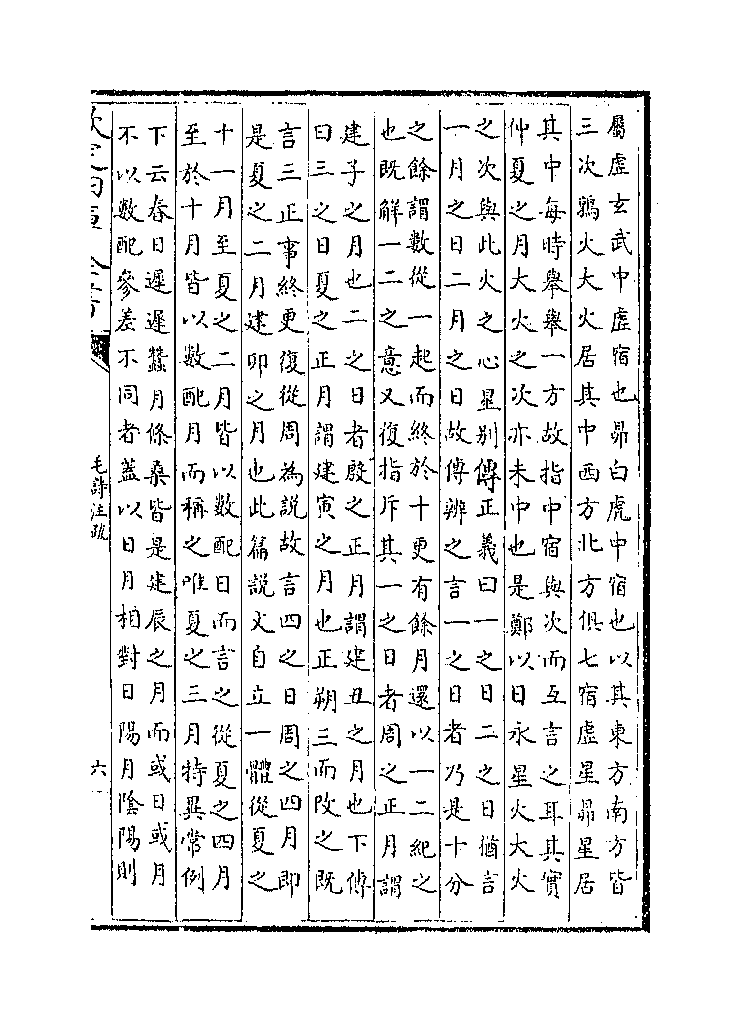 屬虛玄武中虛宿也昴白虎中宿也以其東方南方皆
三次鶉火大火居其中西方北方俱七宿虛星昴星居
其中每時舉舉一方故指中宿與次而互言之耳其實
仲夏之月大火之次亦未中也是鄭以日永星火大火
之次與此火之心星別傳正義曰一之日二之日猶言
一月之日二月之日故傳辨之言一之日者乃是十分
之餘謂數從一起而終於十更有餘月還以一二紀之
也既解一二之意又復指斥其一之日者周之正月謂
建子之月也二之日者殷之正月謂建丑之月也下傳
曰三之日夏之正月謂建寅之月也正朔三而改之既
言三正事終更復從周為說故言四之日周之四月即
是夏之二月建卯之月也此篇說文自立一體從夏之
十一月至夏之二月皆以數配日而言之從夏之四月
至於十月皆以數配月而稱之唯夏之三月特異常例
下云春日遲遲蠶月條桑皆是建辰之月而或日或月
不以數配參差不同者蓋以日月相對日陽月陰陽則
毛詩注疏
六